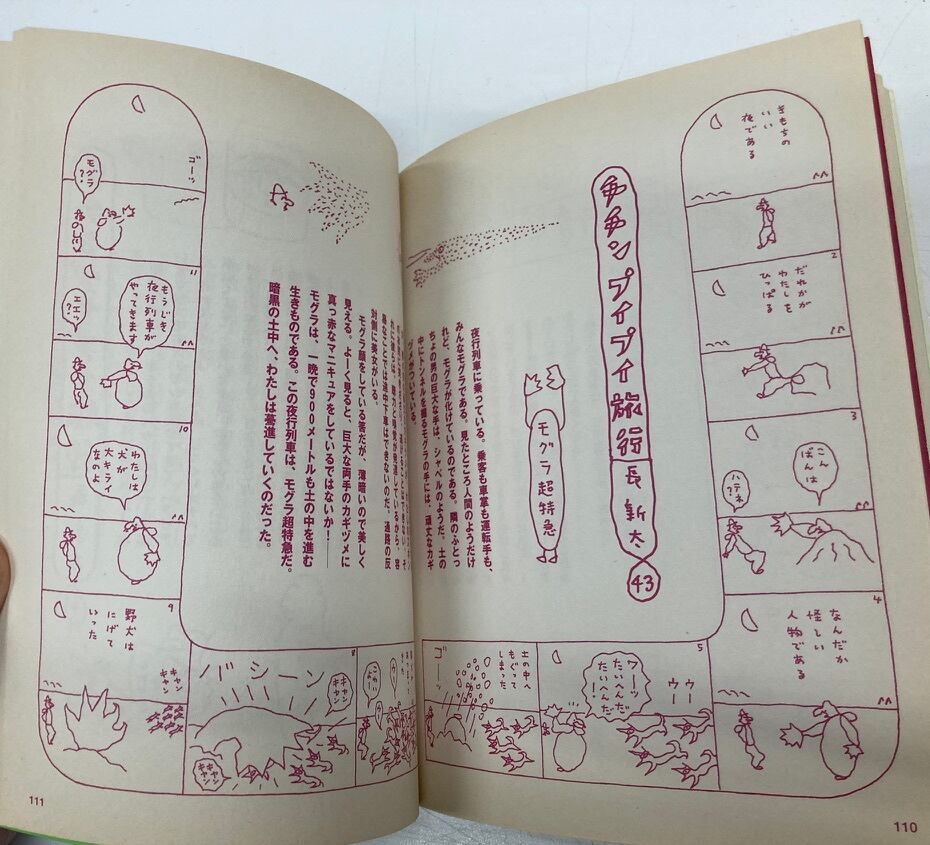 チチンプイプイ旅行
長新太
43
モグラ超特急
夜行列車に乗っている。乗客も車掌も運転手も、
みんなモグラである。見たところ人間のようだけ
れど、モグラが化けているのである。隣のふとっ
ちょの男の巨大な手は、シャベルのようだ。土の
中にトンネルを掘るモグラの手には、頑丈なカギ
ヅメがついている。
対側に美女がいる。
モグラ顔をしている筈だが、薄暗いので美しく
見える。よーく見ると、巨大な両手のカギヅメに
真っ赤なマニキュアをしているではないか!――
モグラは、一晩で900メートルも土の中を進む
生きものである。この夜行列車は、モグラ超特急だ。
暗黒の土中へ、わたしは驀進していくのだった。
きもちの
いい
夜である
2
だれかが
わたしを
ひっぱる
3
こん
ばんは
ハテネ
?
4
なんだか
怪しい
人物である
5
ウー
ウー
ワーッ
たいへんだ
たいへんだ
!
土の中へ
もぐって
しまった
ゴーッ
こわい
ウー
8
バシーン
キャン
キャン
キャン
キャン
9
野犬は
にげて
いった
キャン
キャン
10
わたしは
犬が
大キライ
なのよ
11
もうじき
夜行列車が
やってきます
エエッ
?
ゴーッ
モグラ
?
110
111